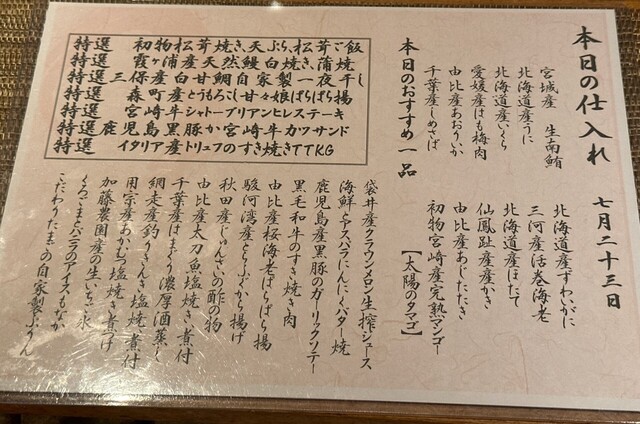 本日の仕入れ　七月二十三日
宮城産　生南鮪
北海道産うに
北海道産いくら
愛媛産はも梅肉
由比産あおりいか
千葉産しめさば
北海道産ずわいがに
三河産活巻海老
北海道産ほたて
仙鳳趾産産かき
由比産あじたたき
初物宮崎産完熟マンゴー
【太陽のタマゴ】
本日のおすすめ一品
特選　初物松茸焼き、天ぷら、松茸ご飯
特選　霞ヶ浦産天然鰻白焼き、蒲焼
特選　三保産白甘鯛自家製一夜干し
特選　森町産とうもろこし甘々娘ばらばら揚
特選　宮崎牛シャトーブリアンヒレステーキ
特選　鹿児島黒豚か宮崎牛カツサンド
特選　イタリア産トリュフのすき焼きTTKG
袋井産クラウンメロン生搾ジュース
海鮮とアスパラにんにくバター焼
鹿児島産黒豚のガーリックソテー
黒毛和牛のすき焼き肉
由比産桜海老ばらばら揚
駿河湾産とらふぐから揚げ
秋田産じゅんさいの酢の物
由比産太刀魚塩焼き、煮付
千葉産はまぐり濃厚酒蒸し
網走産釣りきんき塩焼き、煮付
用宗産あかむつ塩焼き、煮付
加藤農園産の生いちご氷
くろごまとバニラのアイスもなか
こだわりたまごの自家製ぷりん